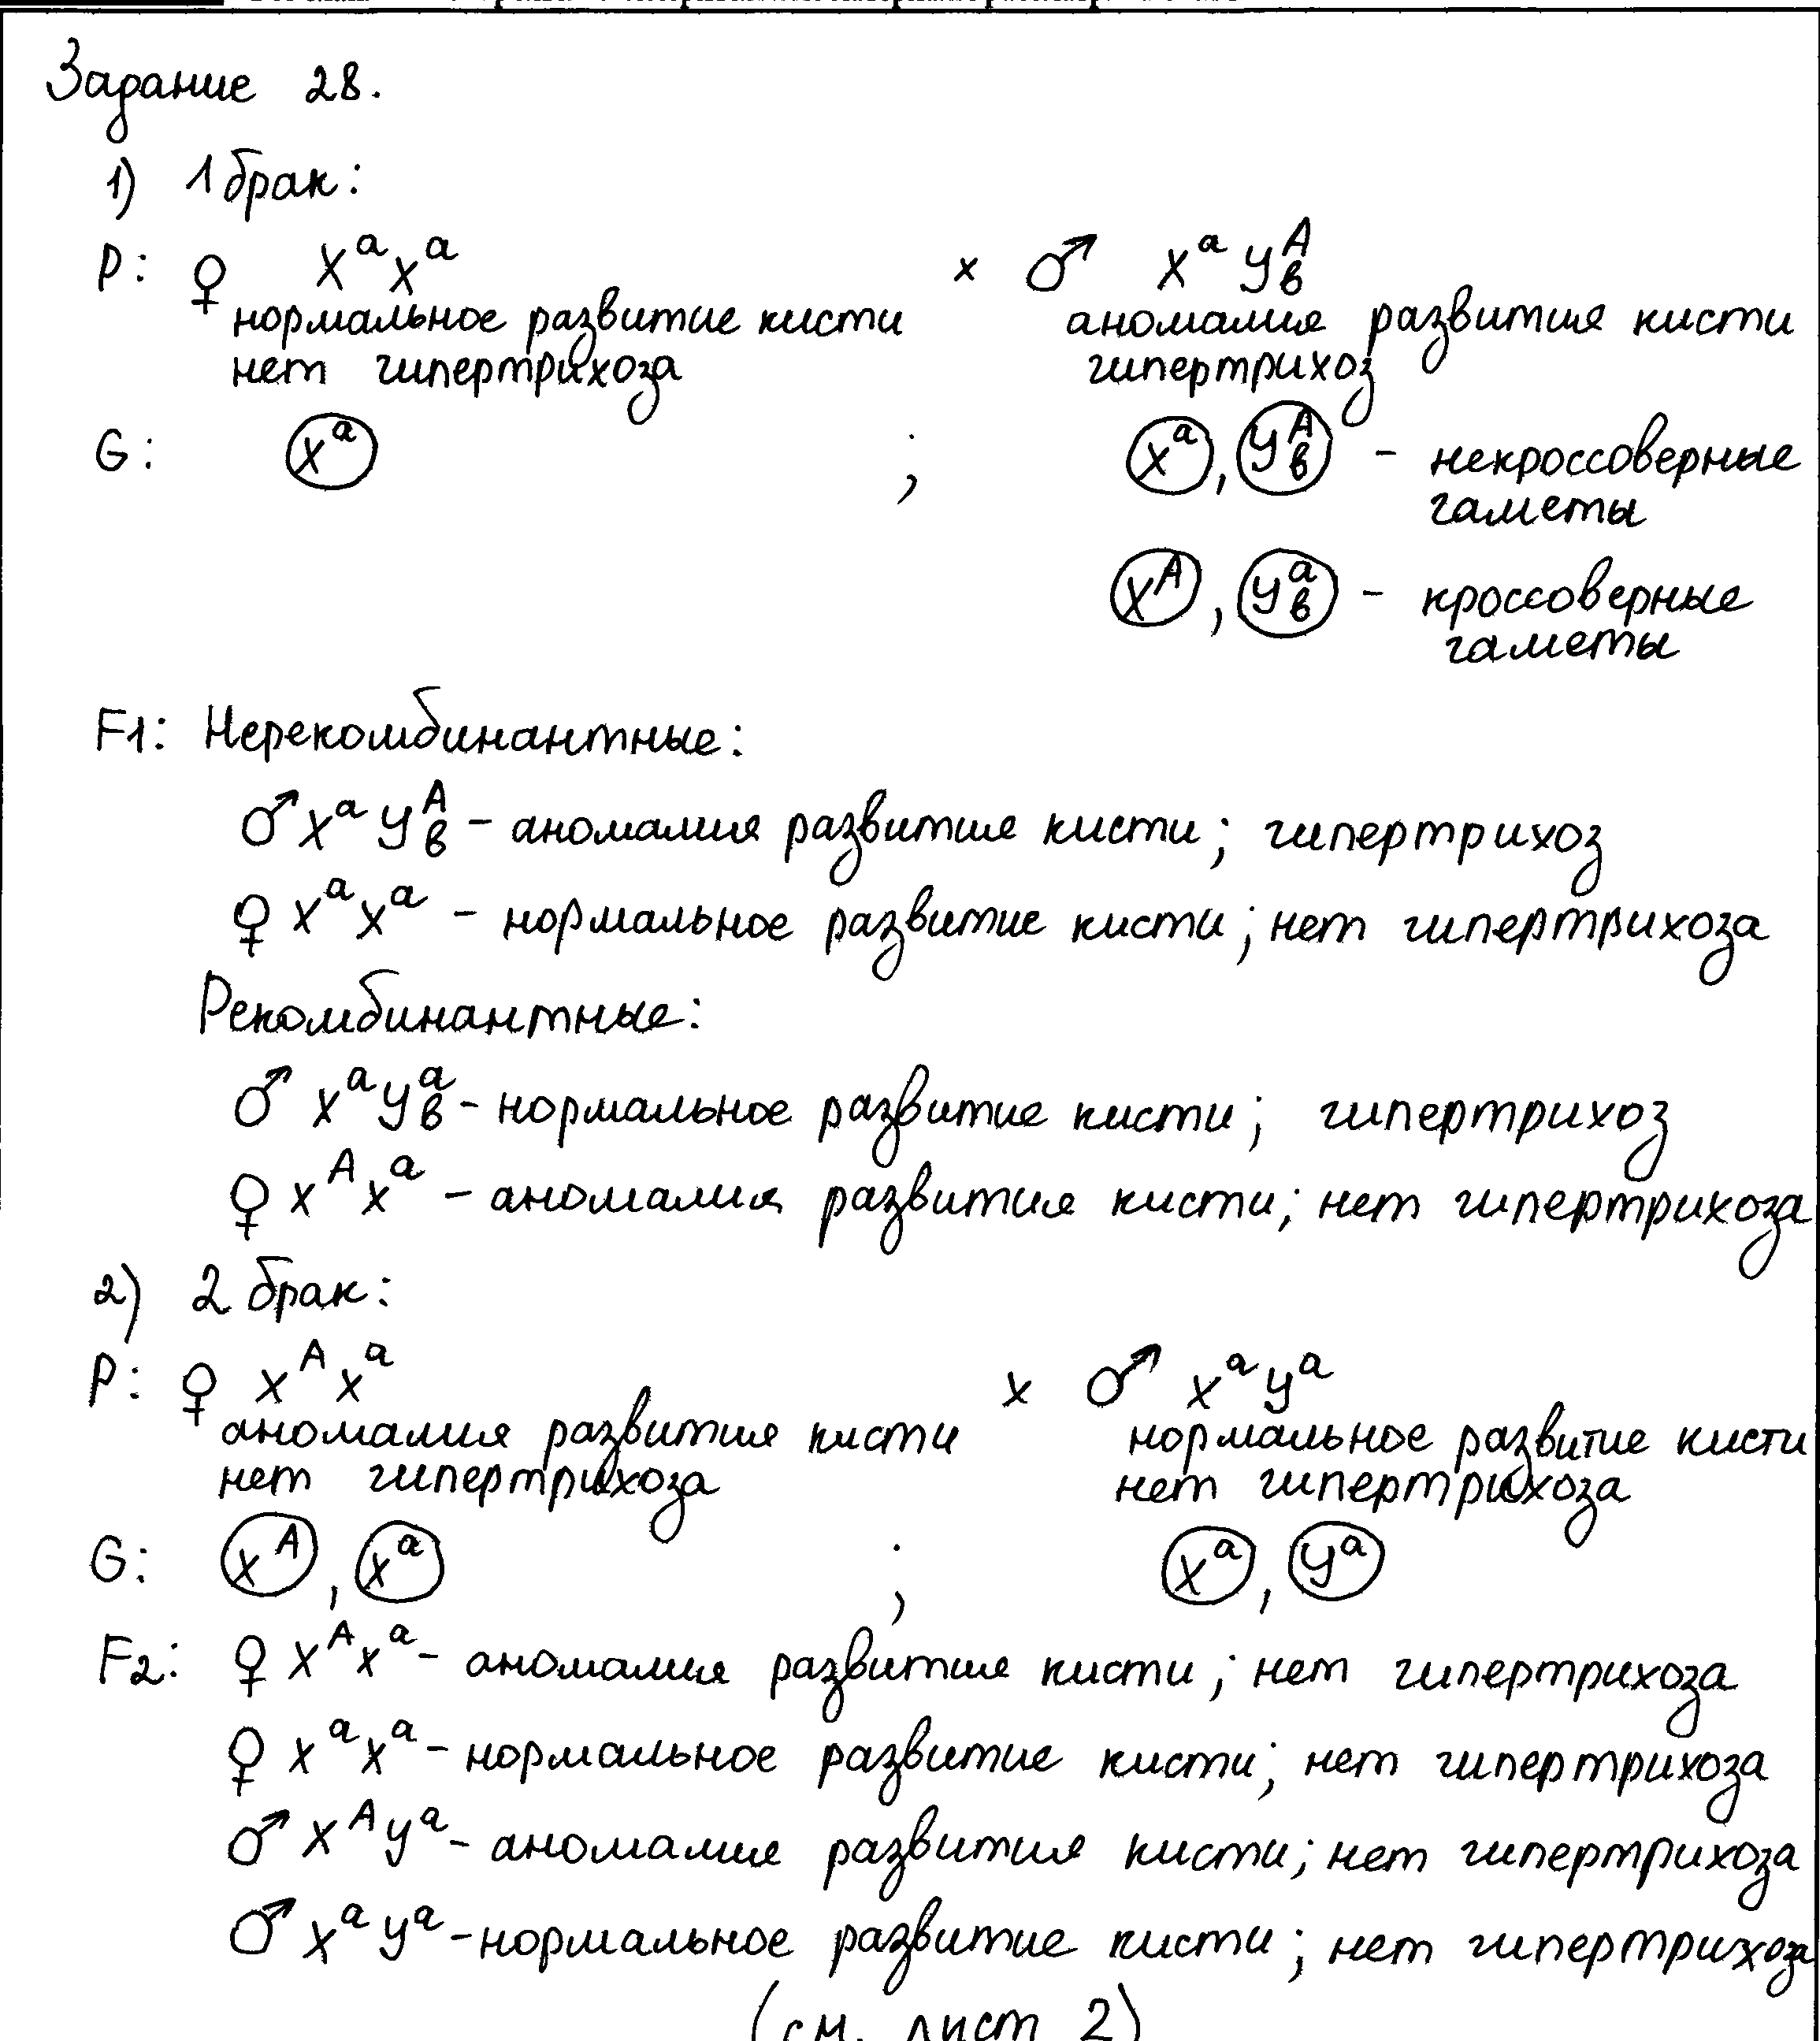 Задание 28.
1) 1 брак:
P: ♀ X^a X^a × ♂ X^a У^A_в
нормальное развитие кисти аномалия развития кисти
нет гипертрихоза гипертрихоз
G: X^a ; X^a, У^A_в - некроссоверные
гаметы
X^A, У^a_в - кроссоверные
гаметы
F1: Нерекомбинантные:
♂ X^a У^A_в - аномалия развития кисти; гипертрихоз
♀ X^a X^a - нормальное развитие кисти; нет гипертрихоза
Рекомбинантные:
♂ X^a У^a_в - нормальное развитие кисти; гипертрихоз
♀ X^A X^a - аномалия развития кисти; нет гипертрихоза
2) 2 брак:
P: ♀ X^A X^a × ♂ X^a У^a
аномалия развития кисти нормальное развитие кисти
нет гипертрихоза нет гипертрихоза
G: X^A, X^a ; X^a, У^a
F2: ♀ X^A X^a - аномалия развития кисти; нет гипертрихоза
♀ X^a X^a - нормальное развитие кисти; нет гипертрихоза
♂ X^A У^a - аномалия развития кисти; нет гипертрихоза
♂ X^a У^a - нормальное развитие кисти; нет гипертрихоза
(см. лист 2)